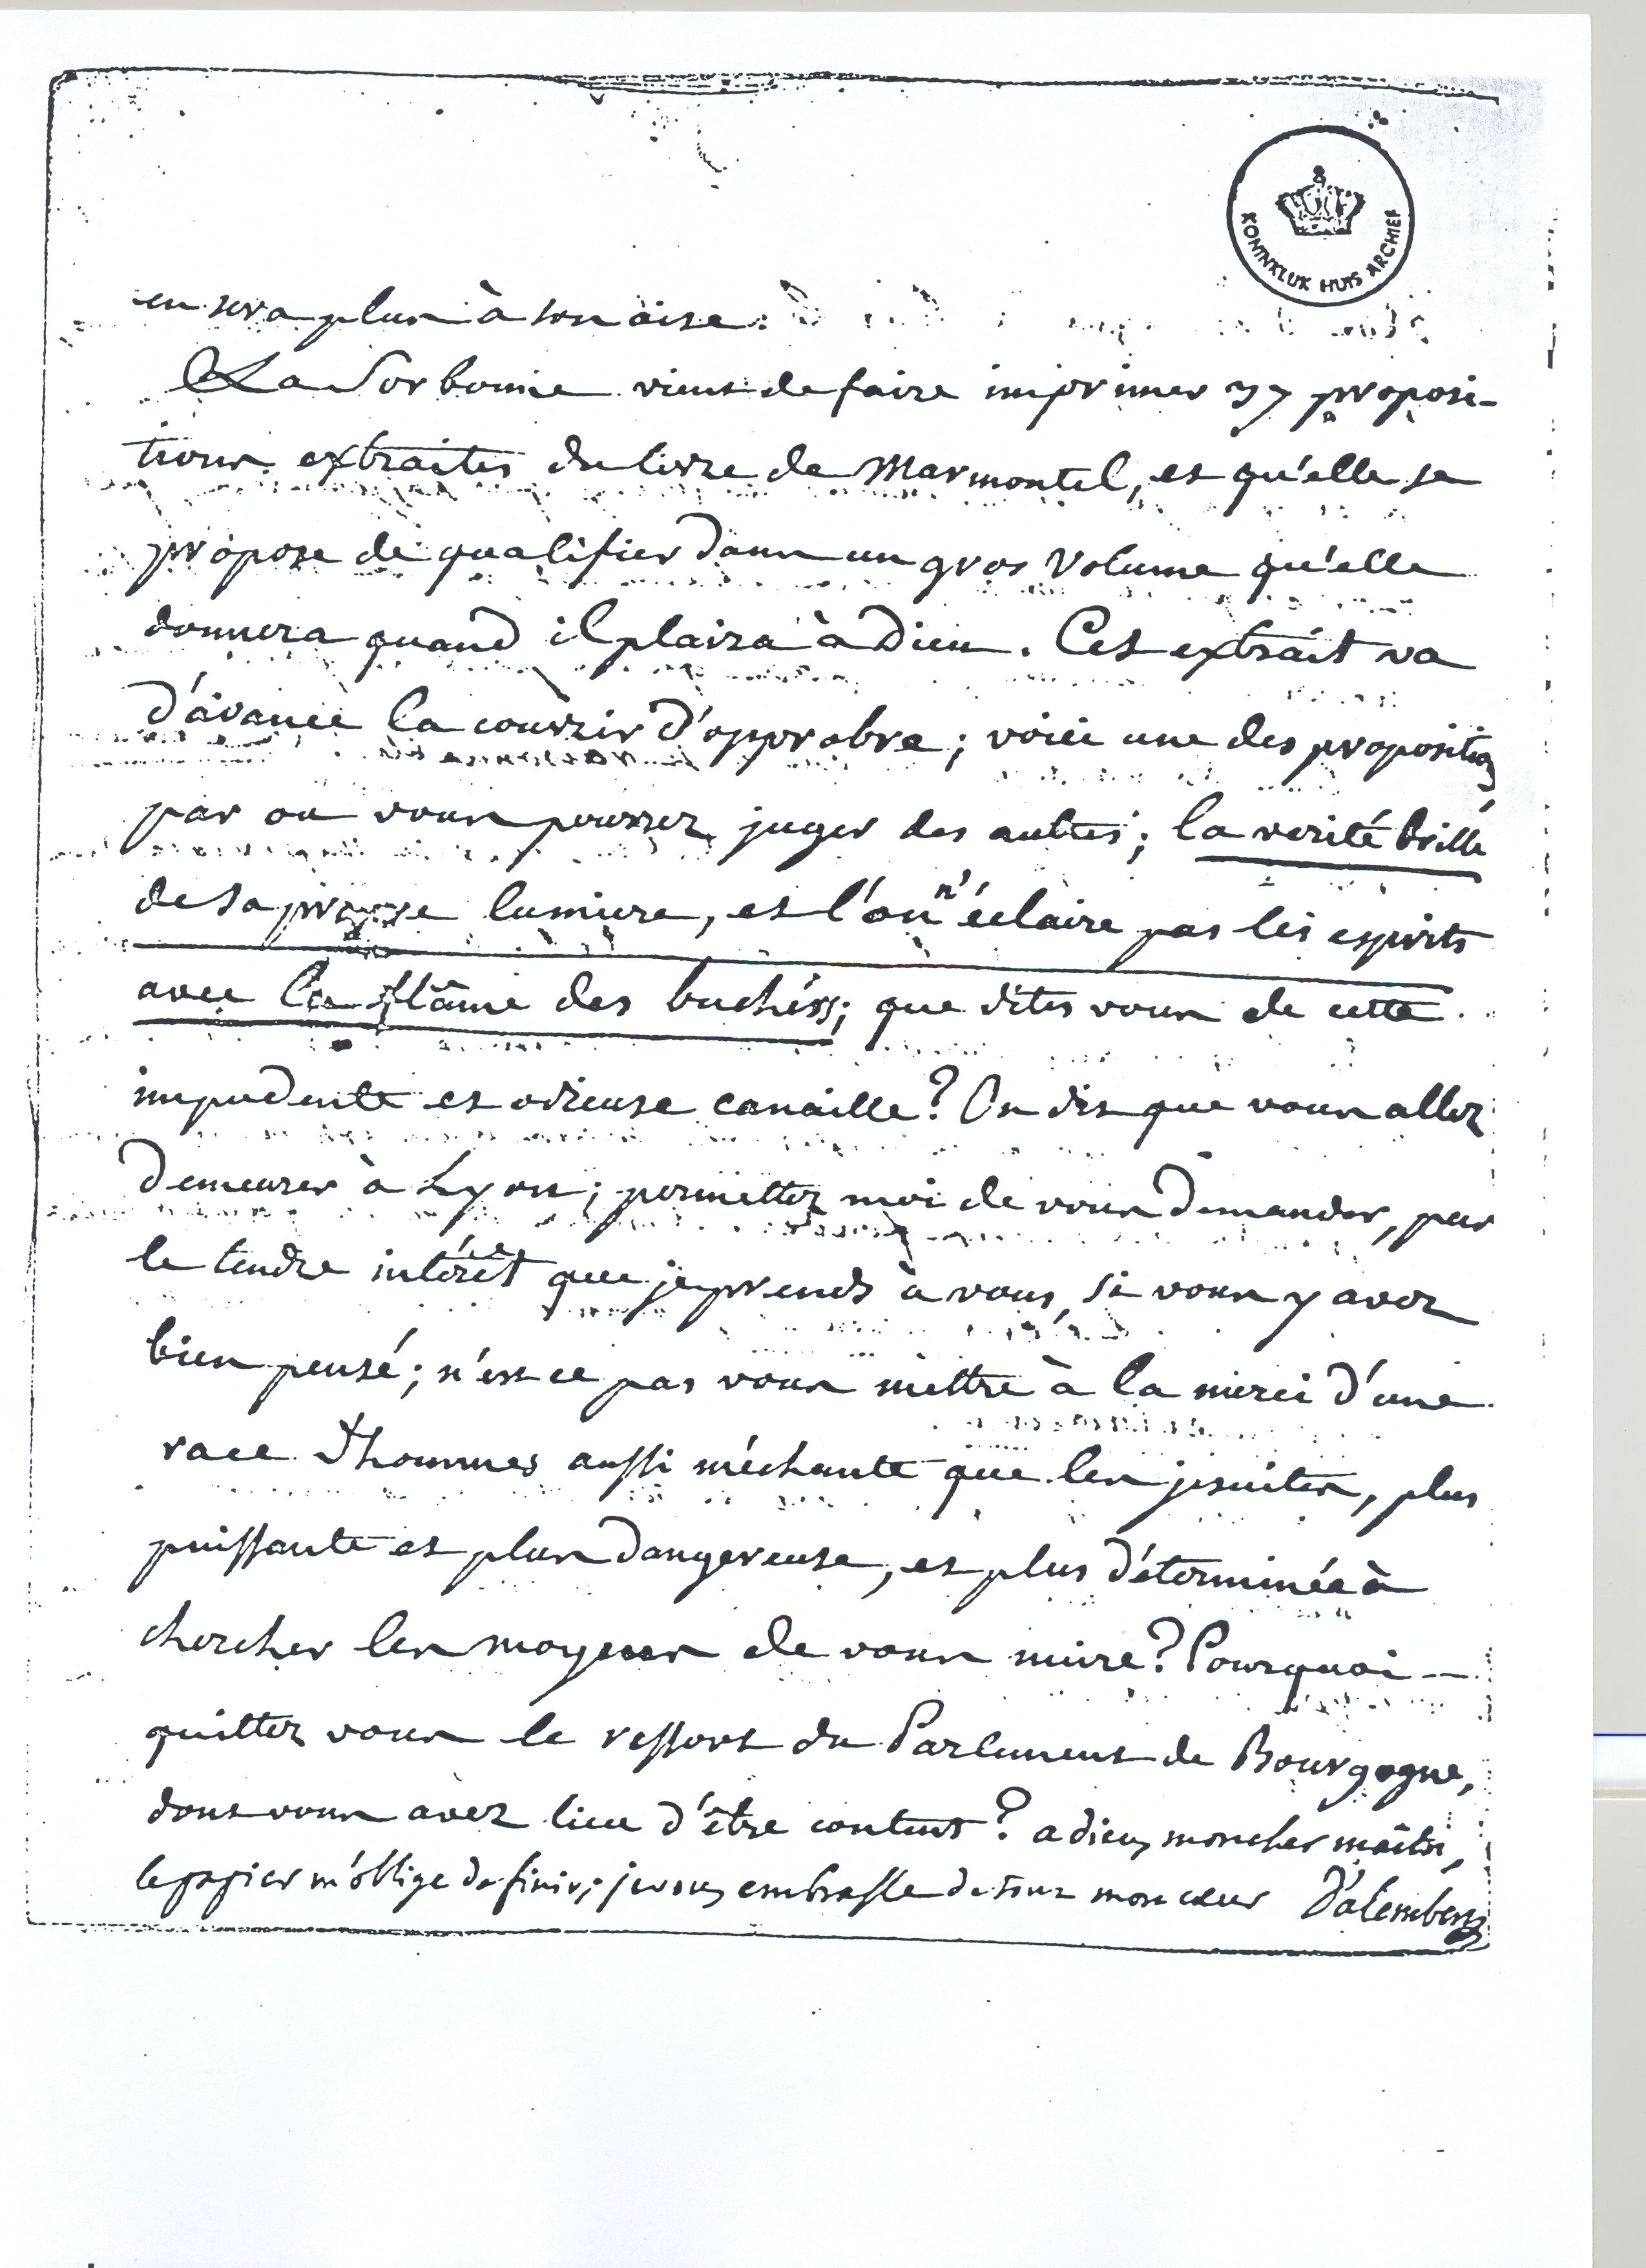 KONINKLIJK HUIS ARCHIEF
en sera plus à son aise.
La Sorbonne vient de faire imprimer 37 proposi-
tions extraites du livre de Marmontel, et qu'elle se
propose de qualifier dans un gros volume qu'elle
donnera quand il plaira à Dieu. Cet extrait va
d'avance la couvrir d'opprobre; voici une des propositions
par où vous pourrez juger des autres; la verité brille
de sa propre lumiere, et l'on n'éclaire pas les esprits
avec la flâme des buchers; que dites vous de cette
impudente et odieuse canaille? On dit que vous allez
demeurer à Lyon; permettez moi de vous demander, par
le tendre intérêt que je prends à vous, si vous y avez
bien pensé; n'est ce pas vous mettre à la merci d'une
race d'hommes aussi méchante que les jesuites, plus
puissante et plus dangereuse, et plus déterminée à
chercher les moyens de vous nuire? Pourquoi
quittez vous le ressort du Parlement de Bourgogne,
dont vous avez lieu d'être content? adieu, mon cher maître,
le papier m'oblige de finir; je vous embrasse de tout mon coeur D'alembert